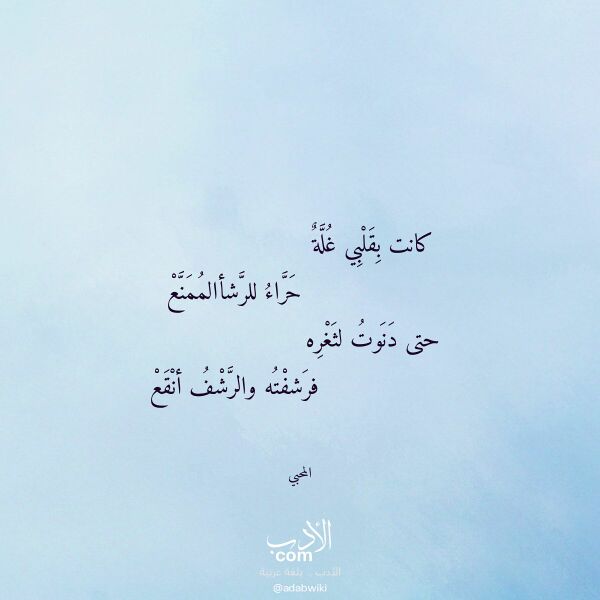 كانت بِقَلْبِي غُلَّةٌ
حَرَّاءُ للرَّشأالمُمَنَّعْ
حتى دَنَوتُ لثَغْرِه
فرَشفْتُه والرَّشْفُ أنْقَعْ
المحبي
الأدب
com
الأدب .. بلغة عربية
@adabwiki